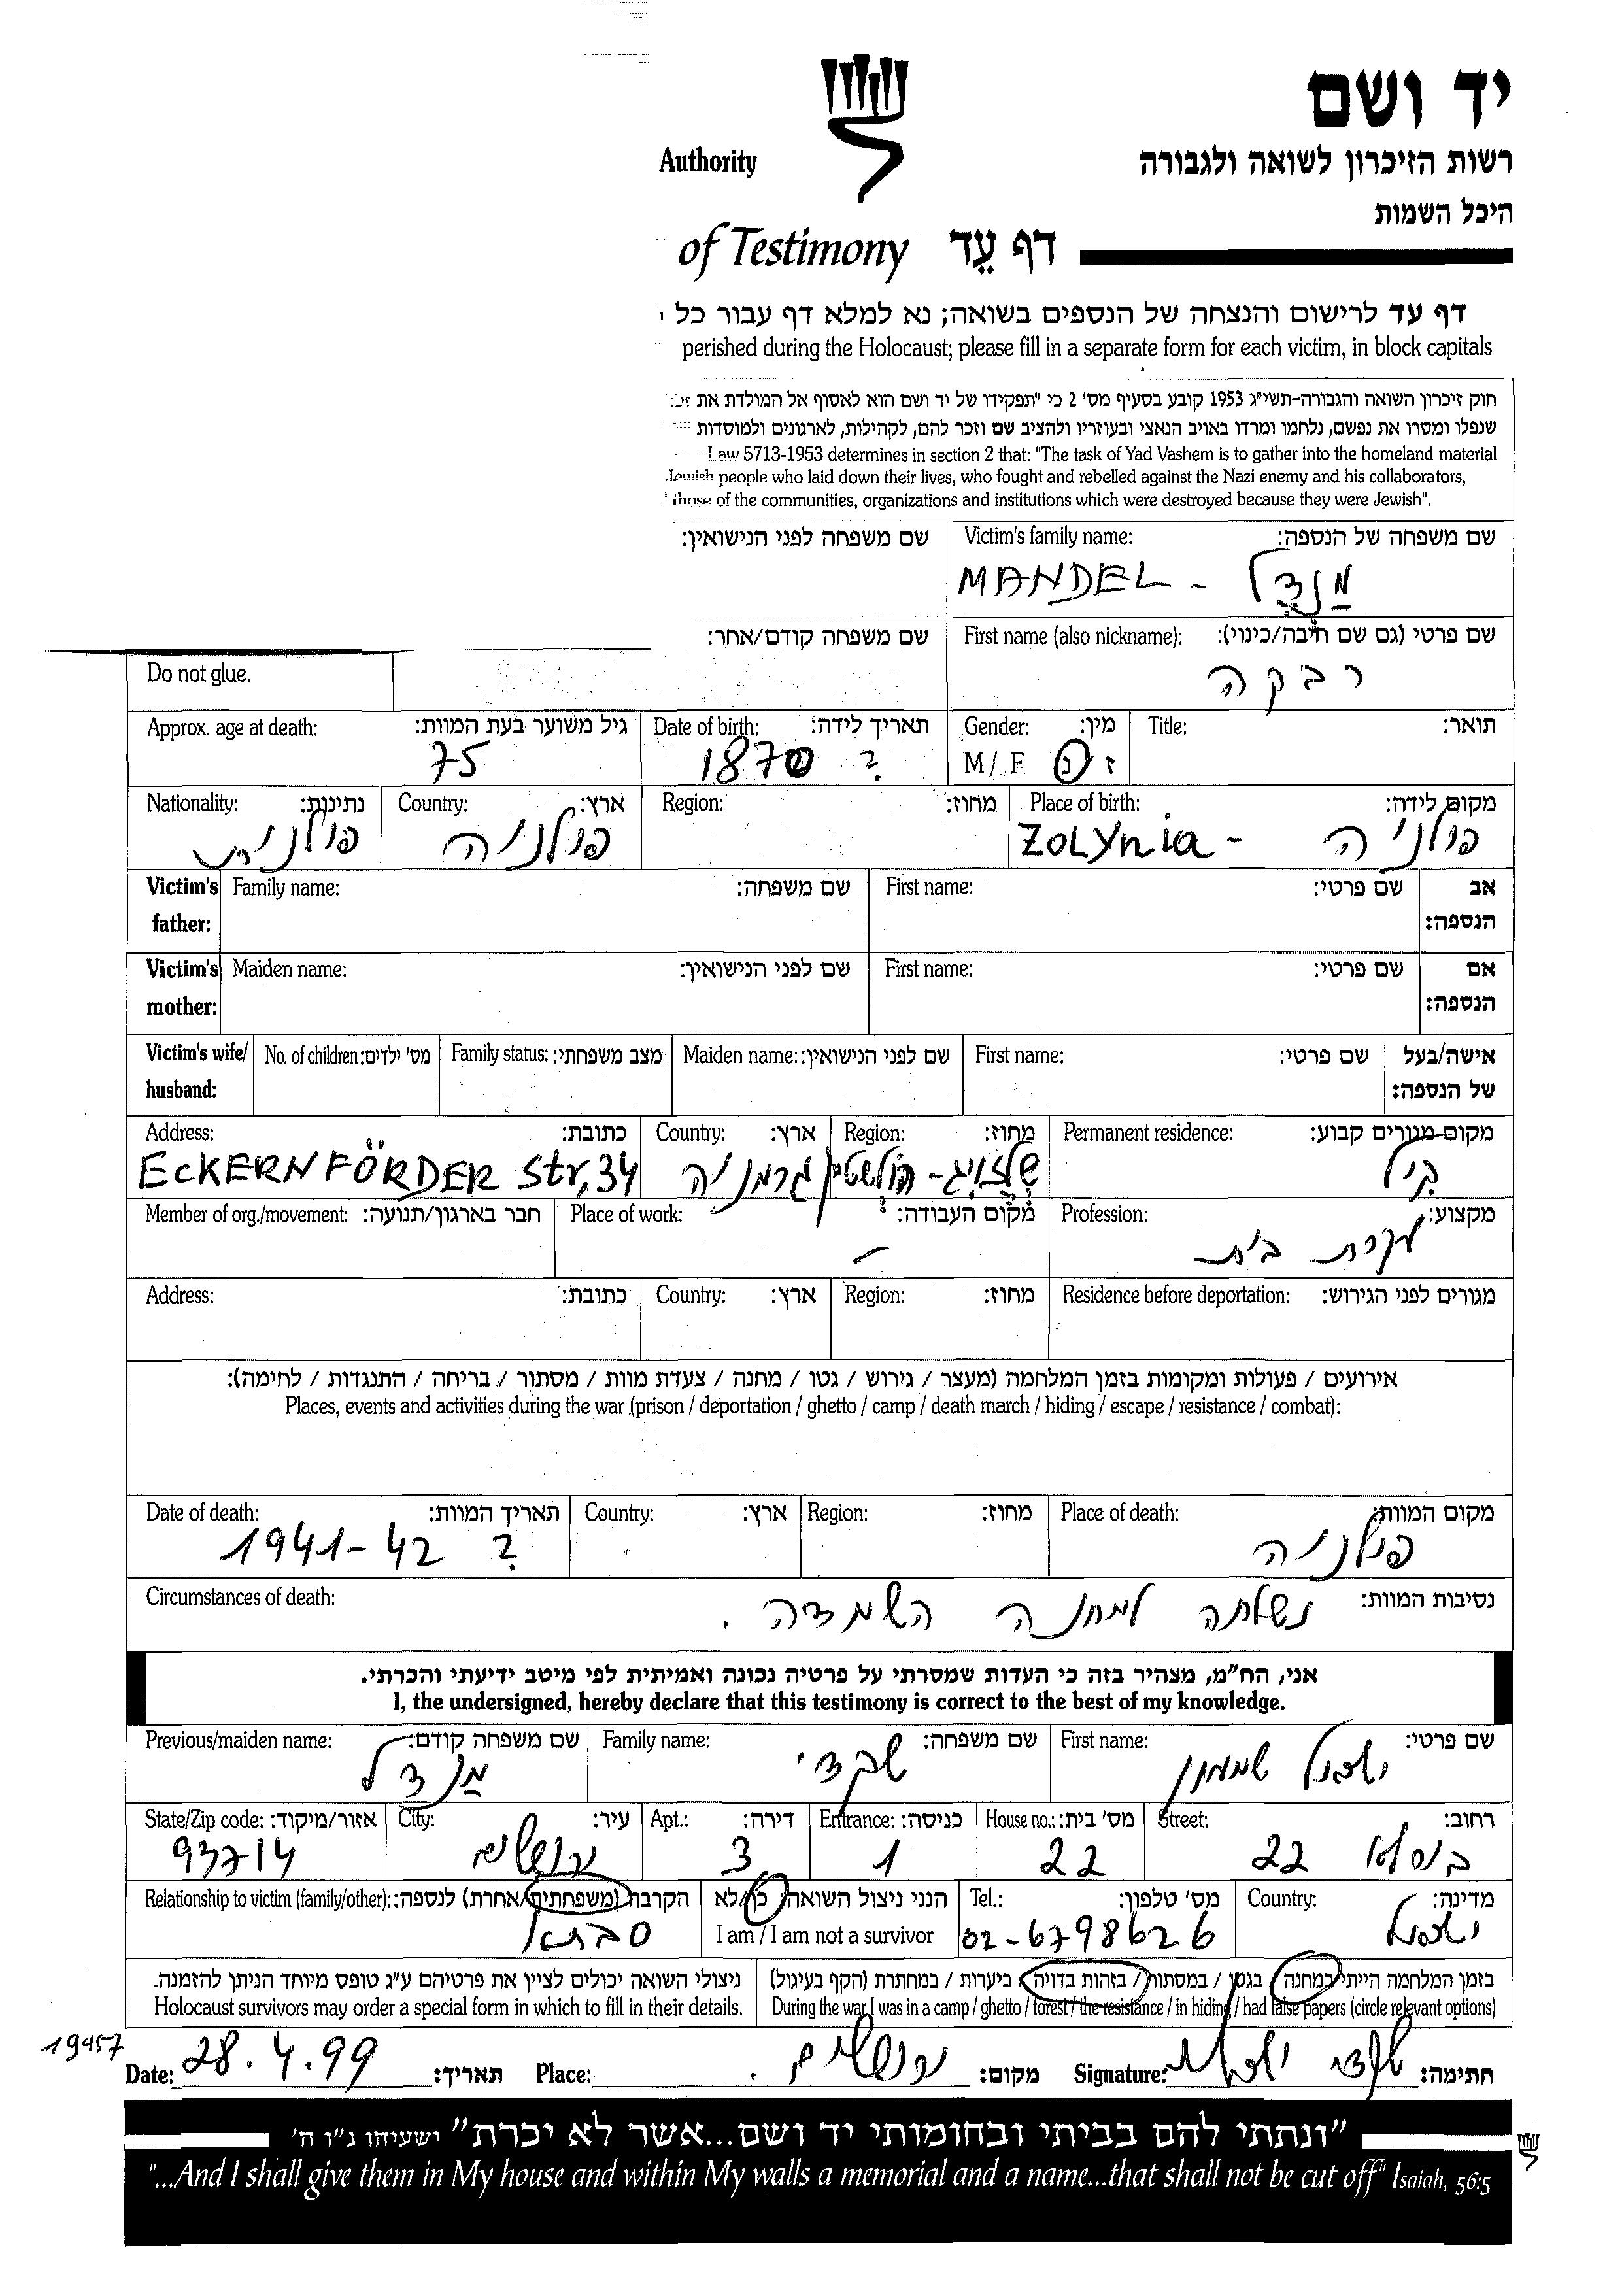 יד ושם
רשות הזיכרון לשואה ולגבורה
Authority
היכל השמות
of Testimony דף עֵד
דף עד לרישום והנצחה של הנספים בשואה; נא למלא דף עבור כל
perished during the Holocaust; please fill in a separate form for each victim, in block capitals
חוק זיכרון השואה והגבורה-תשי"ג 1953 קובע בסעיף מס' 2 כי "תפקידו של יד ושם הוא לאסוף אל המולדת את
שנפלו ומסרו את נפשם, נלחמו ומרדו באויב הנאצי ובעוזריו ולהציב שם וזכר להם, לקהילות, לארגונים ולמוסדות
Law 5713-1953 determines in section 2 that: "The task of Yad Vashem is to gather into the homeland material
Jewish people who laid down their lives, who fought and rebelled against the Nazi enemy and his collaborators,
those of the communities, organizations and institutions which were destroyed because they were Jewish".
שם משפחה של הנספה: Victim's family name: שם משפחה לפני הנישואין:
מַנְדֶל - MANDEL
שם פרטי (גם שם חיבה/כינוי): First name (also nickname): שם משפחה קודם/אחר:
רבקה
Do not glue.
תואר: Title: מין: Gender: תאריך לידה: Date of birth: גיל משוער בעת המוות: Approx. age at death:
ז/נ M/F ? 1870 75
מקום לידה: Place of birth: מחוז: Region: ארץ: Country: נתינות: Nationality:
פולניה - ZOLYNIA פולניה פולנית
אב הנספה: שם פרטי: First name: שם משפחה: Family name: Victim's father:
אם הנספה: שם פרטי: First name: שם לפני הנישואין: Maiden name: Victim's mother:
אישה/בעל של הנספה: שם פרטי: First name: שם לפני הנישואין: Maiden name: מצב משפחתי: Family status: מס' ילדים: No. of children: Victim's wife/ husband:
מקום מגורים קבוע: Permanent residence: מחוז: Region: ארץ: Country: כתובת: Address:
קיל שלזויג-הולשטין גרמניה ECKERNFÖRDER Str, 34
מקצוע: Profession: מקום העבודה: Place of work: חבר בארגון/תנועה: Member of org./movement:
עקרת בית -
מגורים לפני הגירוש: Residence before deportation: מחוז: Region: ארץ: Country: כתובת: Address:
אירועים / פעולות ומקומות בזמן המלחמה (מעצר / גירוש / גטו / מחנה / צעדת מוות / מסתור / בריחה / התנגדות / לחימה):
Places, events and activities during the war (prison / deportation / ghetto / camp / death march / hiding / escape / resistance / combat):
מקום המוות: Place of death: מחוז: Region: ארץ: Country: תאריך המוות: Date of death:
פולניה ? 1941-42
נסיבות המוות: Circumstances of death:
נשלחה למחנה השמדה.
אני, הח"מ, מצהיר בזה כי העדות שמסרתי על פרטיה נכונה ואמיתית לפי מיטב ידיעתי והכרתי.
I, the undersigned, hereby declare that this testimony is correct to the best of my knowledge.
שם פרטי: First name: שם משפחה: Family name: שם משפחה קודם: Previous/maiden name:
ישראל שמעון שקדי מַנדל
רחוב: Street: מס' בית: House no.: כניסה: Entrance: דירה: Apt.: עיר: City: אזור/מיקוד: State/Zip code:
22 22 1 3 ירושלים 93714
מדינה: Country: מס' טלפון: Tel.: הנני ניצול השואה: כן/לא הקרבה (משפחתית/אחרת) לנספה: Relationship to victim (family/other):
ישראל 02-6798626 I am / I am not a survivor סבתא
בזמן המלחמה הייתי במחנה / בגטו / במסתור / בזהות בדויה / ביערות / במחתרת (הקף בעיגול) ניצולי השואה יכולים לציין את פרטיהם ע"ג טופס מיוחד הניתן להזמנה.
During the war I was in a camp / ghetto / forest / the resistance / in hiding / had false papers (circle relevant options) Holocaust survivors may order a special form in which to fill in their details.
19457
חתימה: Signature: שקדי ישראל מקום: Place: ירושלים. תאריך: Date: 28.4.99
"ונתתי להם בביתי ובחומותי יד ושם...אשר לא יכרת" ישעיהו נ"ו ה'
"...And I shall give them in My house and within My walls a memorial and a name...that shall not be cut off" Isaiah, 56:5